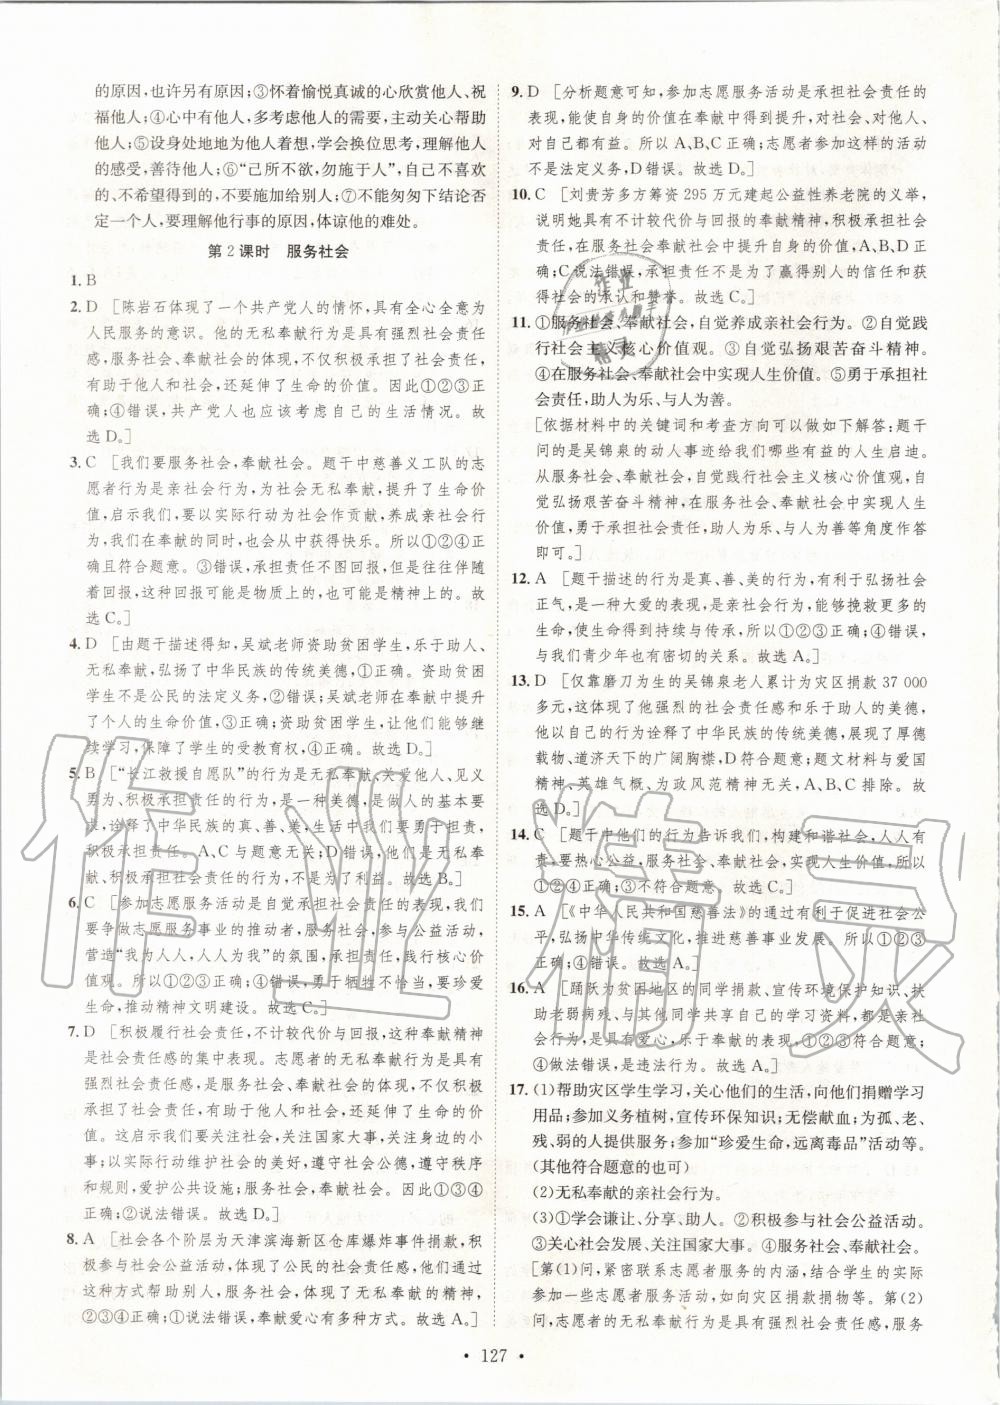 的原因,也许另有原因;③怀着愉悦真诚的心欣赏他人、祝
福他人;④心中有他人,多考虑他人的需要,主动关心帮助
他人;⑤设身处地地为他人着想,学会换位思考,理解他人
的感受,善待他人;⑥“己所不欲,勿施于人”,自己不喜欢
的、不希望得到的,不要施加给别人;⑦不能匆匆下结论否
定一个人,要理解他行事的原因,体谅他的难处。
第2课时 服务社会
1. B
2. D [陈岩石体现了一个共产党人的情怀,具有全心全意为
人民服务的意识。他的无私奉献行为是具有强烈社会责任
感,服务社会、奉献社会的体现,不仅积极承担了社会责任,
有助于他人和社会,还延伸了生命的价值。因此①②③正
确;④错误,共产党人也应该考虑自己的生活情况。故
选D。]
3. C [我们要服务社会,奉献社会。题干中慈善义工队的志
愿者行为是亲社会行为,为社会无私奉献,提升了生命价
值,启示我们,要以实际行动为社会作贡献,养成亲社会行
为,在奉献的同时,也会从中获得快乐。所以①②④正
确且符合题意。③错误,奉献不图回报,但是往往伴随
着回报,这种回报可能是物质上的,也可能是精神上的。
故选C。]
4. D [由题干描述得知,吴斌老师资助贫困学生,乐于助人、
无私奉献,弘扬了中华民族的传统美德,①正确。资助贫困
学生不是公民的法定义务,②错误;吴斌老师在奉献中提升
了个人的生命价值,③正确;资助贫困学生,让他们能够继
续学习,保障了学生的受教育权,④正确。故选D。]
5. B [“长江救援自愿队”的行为是无私奉献、关爱他人、见义
勇为、积极承担责任的行为,是一种美德,是做人的基本要
求,诠释了中华民族的真、善、美,生活中我们要勇于担责,
积极承担责任。A、C与题意无关;D错误,他们是无私奉
献、积极承担社会责任的行为,不是为了利益。故选B。]
6. C [参加志愿服务活动是自觉承担社会责任的表现,我们
要争做志愿服务事业的推动者,服务社会,参与公益活动,
营造“我为人人,人人为我”的氛围,承担责任,践行核心价
值观。所以①②③正确。④错误,勇于牺牲不恰当,要珍爱
生命,推动精神文明建设。故选C。]
7. D [积极履行社会责任,不计较代价与回报,这种奉献精神
是社会责任感的集中表现。志愿者的无私奉献行为是具有
强烈社会责任感,是服务社会、奉献社会的体现,不仅积极
承担了社会责任,有助于他人和社会,还延伸了生命的价
值。这启示我们要关注社会,关注国家大事,关注身边的小
事;以实际行动维护社会的美好,遵守社会公德,遵守秩序
和规则,爱护公共设施;服务社会、奉献社会。所以①③④
正确;②说法错误。故选D。]
8. A [社会各个阶层为天津滨海新区仓库爆炸事件捐款,积
极参与社会公益活动,体现了公民的社会责任感,他们通过
这种方式帮助别人,服务社会,体现了无私奉献的精神,
②③④正确;①说法错误,奉献爱心有多种方式。故选A。]
9. D [分析题意可知,参加志愿服务活动是承担社会责任的
表现,能使自身的价值在奉献中得到提升,对社会、对他人、
对自己都是有意义的。所以A、B、C正确;参加这样的活动
不是法定义务,D错误。故选D。]
10. C [刘贵芳多方筹资295万元建起公益性养老院的义举,
说明她具有不计较代价与回报的奉献精神,积极承担社会
责任,在服务社会奉献社会中提升自身的价值,A、B、D正
确;C说法错误,承担责任不是为了赢得别人的信任和获
得社会的承认和赞誉。故选C。]
11. ①服务社会、奉献社会,自觉养成亲社会行为。②自觉践
行社会主义核心价值观。③自觉弘扬艰苦奋斗精神。
④在服务社会、奉献社会中实现人生价值。⑤勇于承担社
会责任,助人为乐、与人为善。
[依据材料中的关键词和考查方向可以做如下解答:题干
问的是吴锦泉的动人事迹给我们哪些有益的人生启迪。
从服务社会、奉献社会,自觉践行社会主义核心价值观,自
觉弘扬艰苦奋斗精神,在服务社会、奉献社会中实现人生
价值,勇于承担社会责任,助人为乐、与人为善等角度作答
即可。]
12. A [题干描述的行为是真、善、美的行为,有利于弘扬社会
正气,是一种大爱的表现,是亲社会行为,能够挽救更多的
生命,使生命得到持续与传承,所以①②③正确;④错误,
与我们青少年也有密切的关系。故选A。]
13. D [仅靠磨刀为生的吴锦泉老人累计为灾区捐款37 000
多元,体现了他强烈的社会责任感和乐于助人的美德,
他以自己的行为诠释了中华民族传统美德,展现了厚德
载物、道济天下的广阔胸襟,D符合题意;题文材料与爱国
精神、英雄气概、为政风范精神无关,A、B、C排除。故
选D。]
14. C [题干中他们的行为告诉我们,构建和谐社会,人人有
责;要热心公益,服务社会,奉献社会,实现人生价值,所以
①②④正确;③不符合题意。故选C。]
15. A [《中华人民共和国慈善法》的通过有利于促进社会公
平,弘扬中华传统文化,推进慈善事业发展。所以①②③
正确,④错误。故选A。]
16. A [踊跃为贫困地区的同学捐款、宣传环境保护知识、扶
助老弱病残、与其他同学共享自己的学习资料,都是亲社
会行为,是具有爱心,乐于奉献的表现,①②③符合题意;
④做法错误,是违法行为。故选A。]
17. (1)帮助灾区学生学习,关心他们的生活,向他们捐赠学习
用品;参加义务植树,宣传环保知识;无偿献血;为孤、老、
残、弱的人提供服务;参加“珍爱生命,远离毒品”活动等。
(其他符合题意的也可)
(2)无私奉献的亲社会行为。
(3)①学会谦让、分享、助人。②积极参与社会公益活动。
③关心社会发展、关注国家大事。④服务社会、奉献社会。
[第(1)问,紧密联系志愿者服务的内涵,结合学生的实际
参加一些志愿者服务活动,如向灾区捐款捐物等。第(2)
问,志愿者的无私奉献行为是具有强烈社会责任感,服务
• 127 •
作业精灵